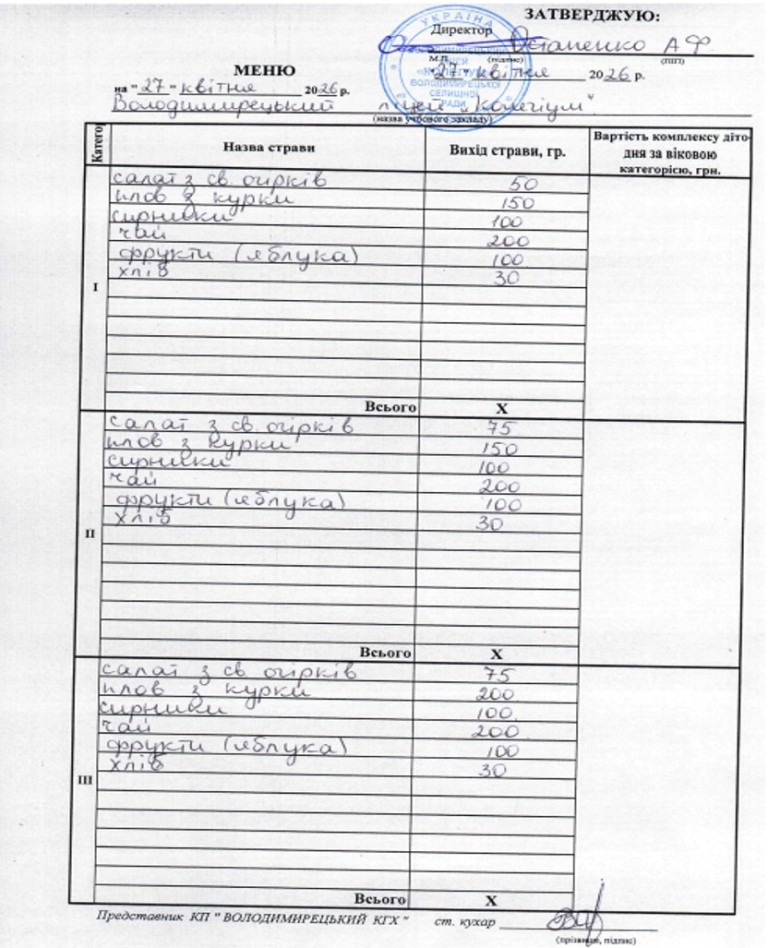 ЗАТВЕРДЖУЮ:
УКРАЇНА
Директор
Остапенко А Ф
М.П. (підпис) (ПІП)
"27" квітня 2026 р.
ВОЛОДИМИРЕЦЬКОЇ
СЕЛИЩНОЇ
РАДИ
МЕНЮ
на "27" квітня 2026 р.
Володимирецький ліцей „Колегіум"
(назва учбового закладу)
Катего Назва страви Вихід страви, гр. Вартість комплексу діто-
дня за віковою
категорією, грн.
I
салат з св. огірків 50
плов з курки 150
сирники 100
чай 200
фрукти (яблука) 100
хліб 30
Всього X
II
салат з св. огірків 75
плов з курки 150
сирники 100
чай 200
фрукти (яблука) 100
хліб 30
Всього X
III
салат з св. огірків 75
плов з курки 200
сирники 100
чай 200
фрукти (яблука) 100
хліб 30
Всього X
Представник КП " ВОЛОДИМИРЕЦЬКИЙ КГХ " ст. кухар
(прізвище, підпис)